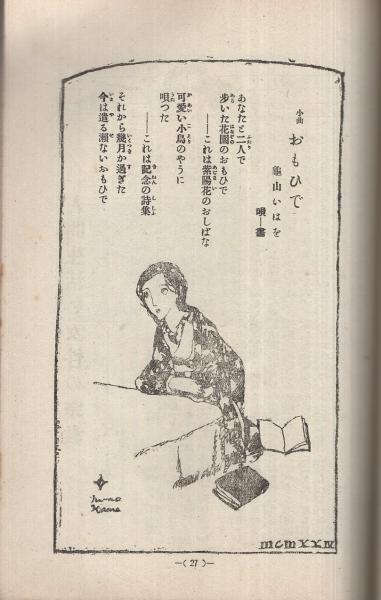 小曲 おもひで
龜山いはを
唄―畵
あなたと二人で
歩いた花園のおもひで
――これは紫陽花のおしばな
可愛い小鳥のやうに
唄つた
――これは記念の詩集
それから幾月か過ぎた
今は遣る瀬ないおもひで
MCMXXIV
—( 27 )—